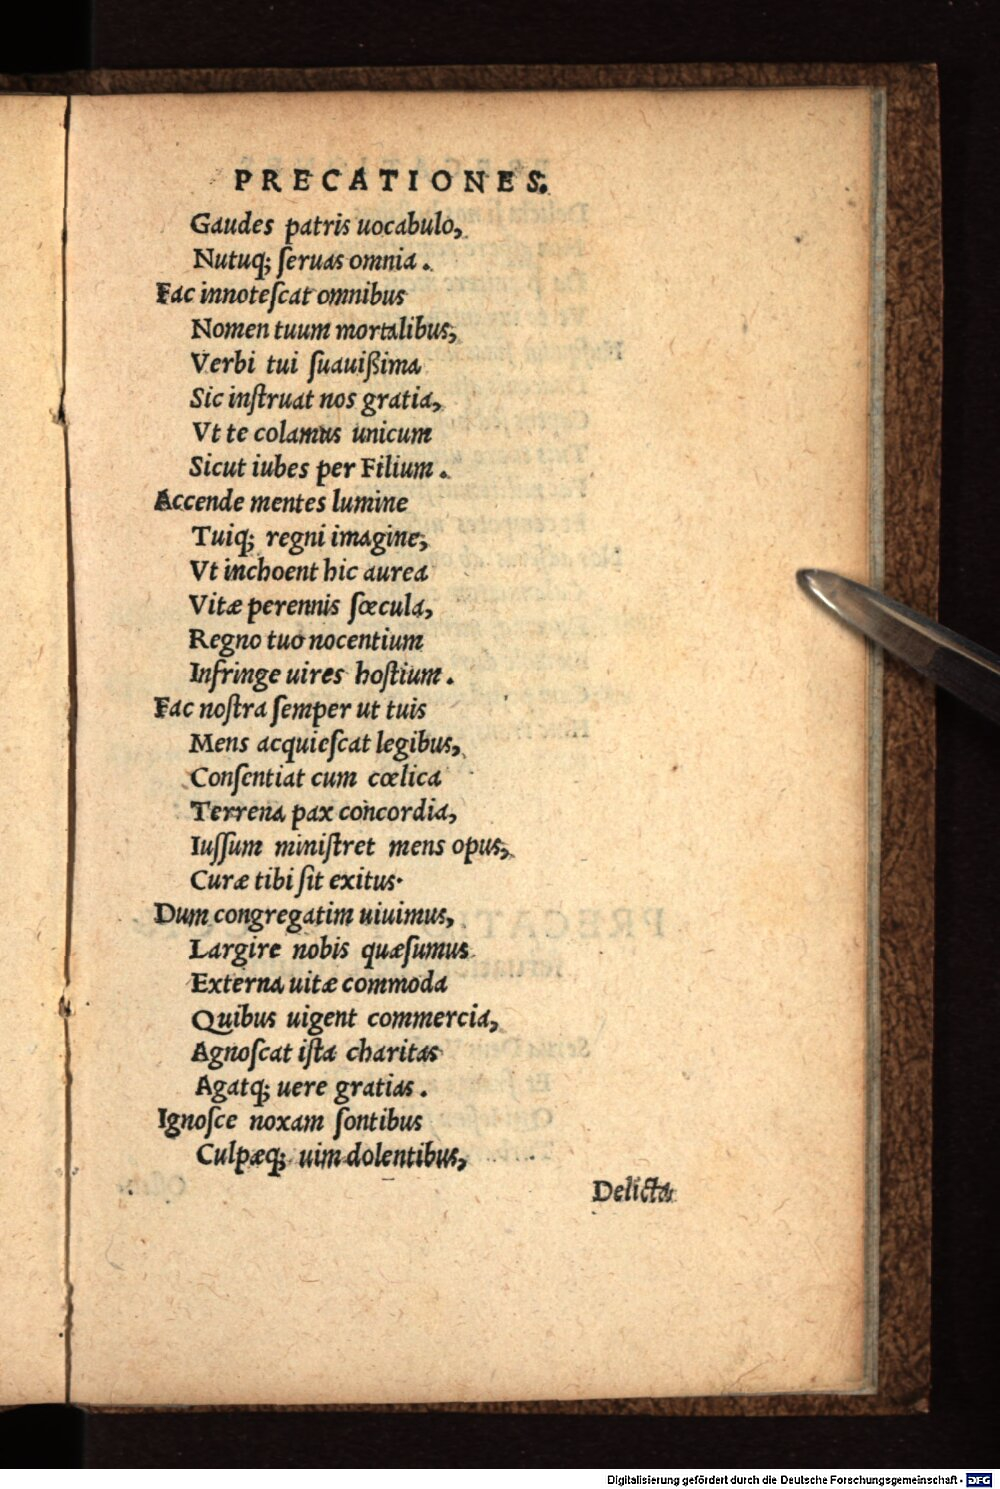 PRECATIONES.
Gaudes patris uocabulo,
Nutuq; ſeruas omnia.
Fac innoteſcat omnibus
Nomen tuum mortalibus,
Verbi tui ſuauißima
Sic inſtruat nos gratia,
Vt te colamus unicum
Sicut iubes per Filium.
Accende mentes lumine
Tuiq; regni imagine,
Vt inchoent hic aurea
Vitæ perennis ſœcula,
Regno tuo nocentium
Infringe uires hoſtium.
Fac noſtra ſemper ut tuis
Mens acquieſcat legibus,
Conſentiat cum cœlica
Terrena pax concordia,
Iuſſum miniſtret mens opus,
Curæ tibi ſit exitus.
Dum congregatim uiuimus,
Largire nobis quæſumus
Externa uitæ commoda
Quibus uigent commercia,
Agnoſcat iſta charitas
Agatq; uere gratias.
Ignoſce noxam ſontibus
Culpæq; uim dolentibus,
Delicta
Digitalisierung gefördert durch die Deutsche Forschungsgemeinschaft - DFG